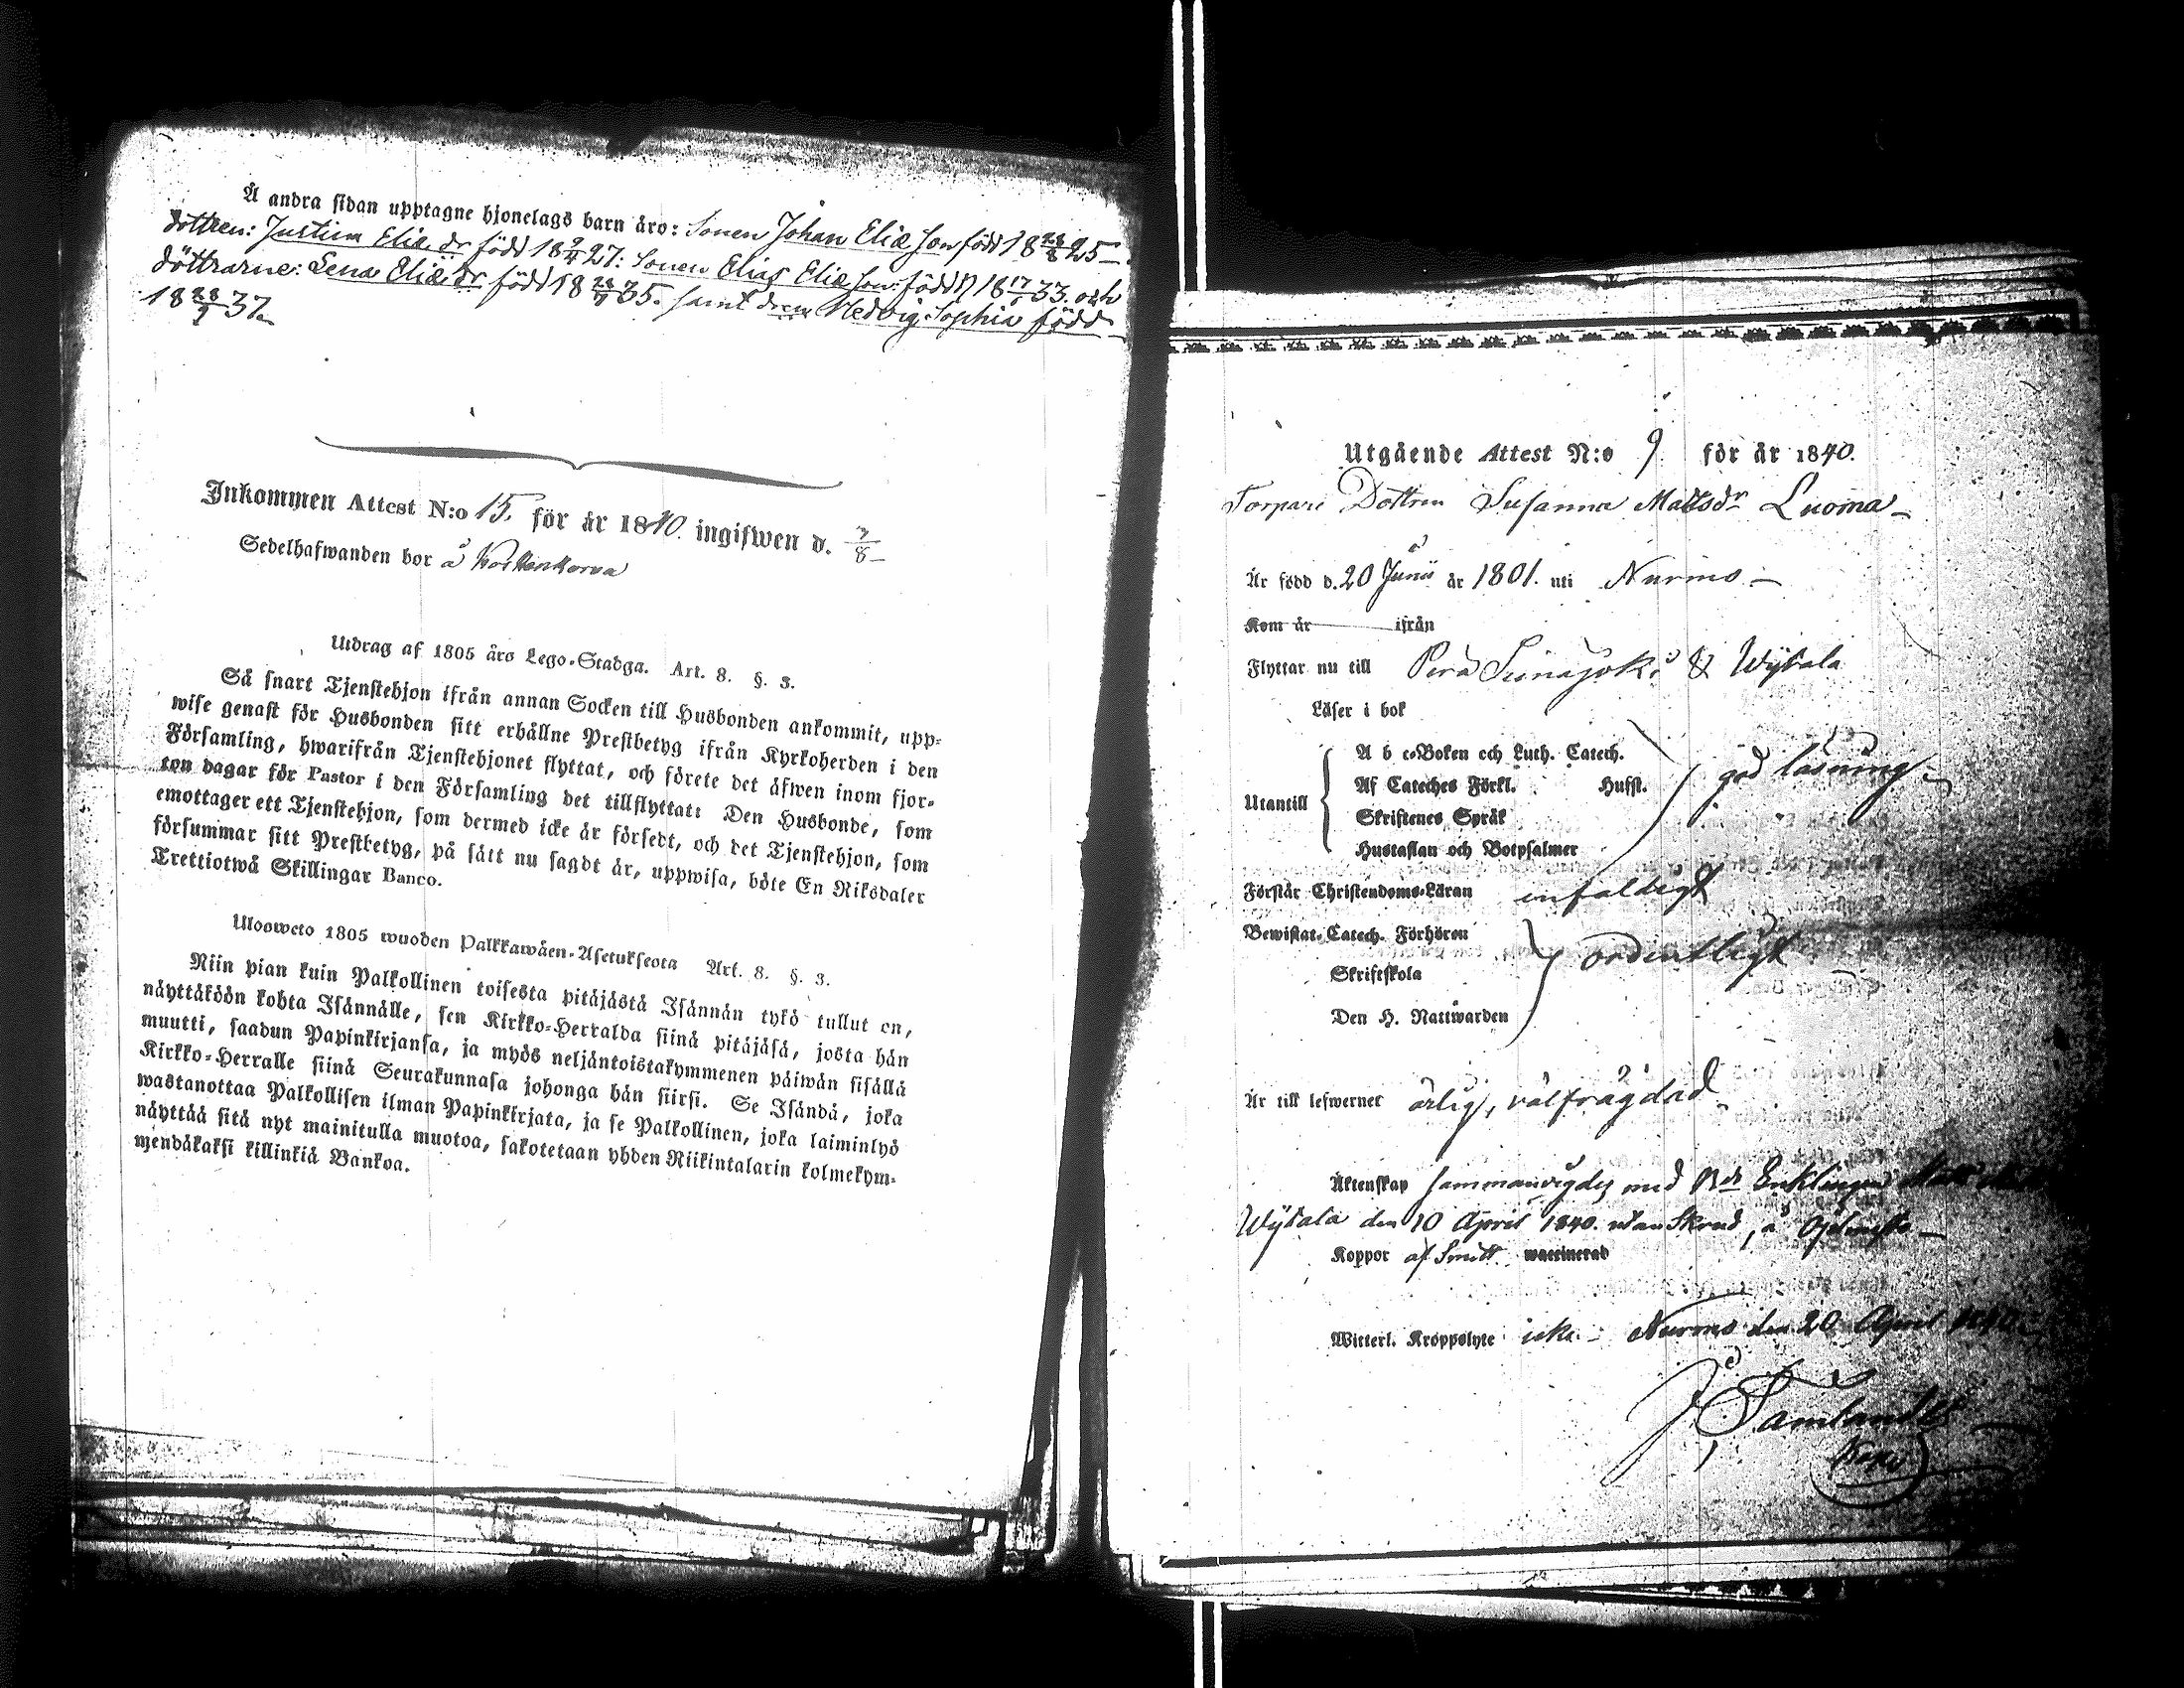 Å andra sidan upptagne hjonelags barn äro: Sonen Johan Eliæ son född 18 28/8 25
dottren: Justina Eliæ dr född 18 9/4 27: Sonen Elias Eliæ son: född 18 17/ 33. och
döttrarne: Lena Eliæ dr född 18 28/7 35. samt Hedvig Sophia född
18 28/ 37
Inkommen Attest N:o 15. för år 1840. ingifwen d. 7/8
Sedelhafwanden bor å Koskenkorva
Utdrag af 1805 års Lego-Stadga. Art. 8. §. 3.
Så snart Tjenstehjon ifrån annan Socken till Husbonden ankommit, upp-
wise genast för Husbonden sitt erhållne Prestbetyg ifrån Kyrkoherden i den
Församling, hwarifrån Tjenstehjonet flyttat, och förete det äfwen inom fjor-
ton dagar för Pastor i den Församling det tillflyttat: Den Husbonde, som
emottager ett Tjenstehjon, som dermed icke är försedt, och det Tjenstehjon, som
försummar sitt Prestbetyg, på sätt nu sagdt är, uppwisa, böte En Riksdaler
Trettiotwå Skillingar Banco.
Ulosweto 1805 wuoden Palkkawäen-Asetuksesta Art. 8. §. 3.
Niin pian kuin Palkollinen toisesta pitäjästä Isännän tykö tullut on,
näyttäköön kohta Isännälle, sen Kirkko-Herralda siinä pitäjäsä, josta hän
muutti, saadun Papinkirjansa, ja myös neljäntoistakymmenen päiwän sisällä
Kirkko-Herralle siinä Seurakunnasa johonga hän siirsi. Se Isändä, joka
wastanottaa Palkollisen ilman Papinkirjata, ja se Palkollinen, joka laiminlyö
näyttää sitä nyt mainitulla muotoa, sakotetaan yhden Riikintalarin kolmekym-
mendäkaksi killinkiä Bankoa.
Utgående Attest N:o 9 för år 1840.
Torpare Dottren Susanna Matsdr Luoma
Är född d. 20 Junii år 1801. uti Nurmo
Kom år ifrån
Flyttar nu till Perä Seinäjoki & Wytala
Läser i bok
A b c-Boken och Luth. Catech.
Af Cateches Förkl. Hufst.
Utantill
Skriftenes Språk
Hustaflan och Botpsalmer
god läsning
Förstår Christendoms-Läran enfaldigt
Bewistat. Catech. Förhören
Skriftskola
Den H. Nattwarden
ordentligt
Är till lefwernet ärlig, välfrägdad
Äktenskap sammanvigdes med Bde Enklingen
Wytala den 10 April 1840. utan Skrud, å
Koppor af Smitt waccinerad
Witterl. Kroppslyte icke. Nurmo den 20 April 1840.